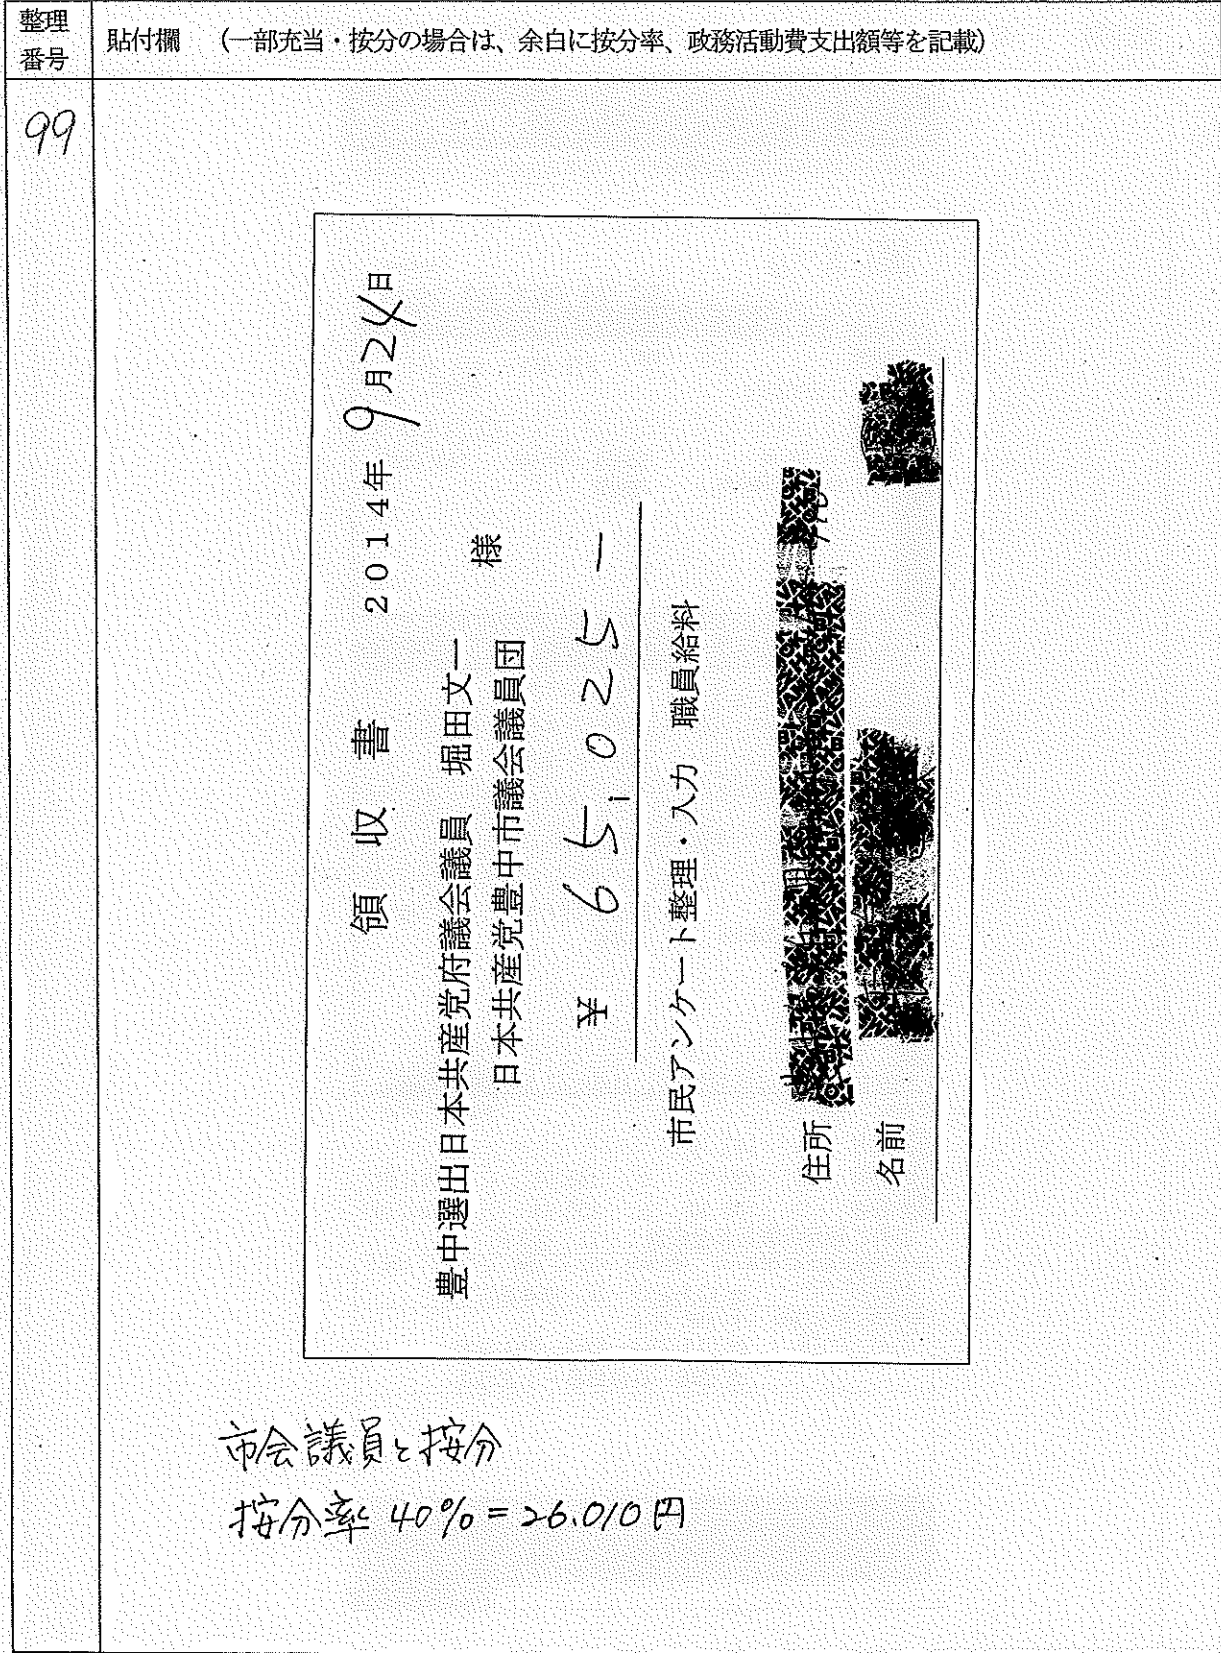 整理番号
貼付欄 （一部充当・按分の場合は、余白に按分率、政務活動費支出額等を記載）
99
領収書 2014年9月24日
豊中選出日本共産党府議会議員 堀田文一
日本共産党豊中市議会議員団 様
¥ 65,025-
市民アンケート整理・入力 職員給料
住所
名前
市会議員と按分
按分率 40%=26.010円